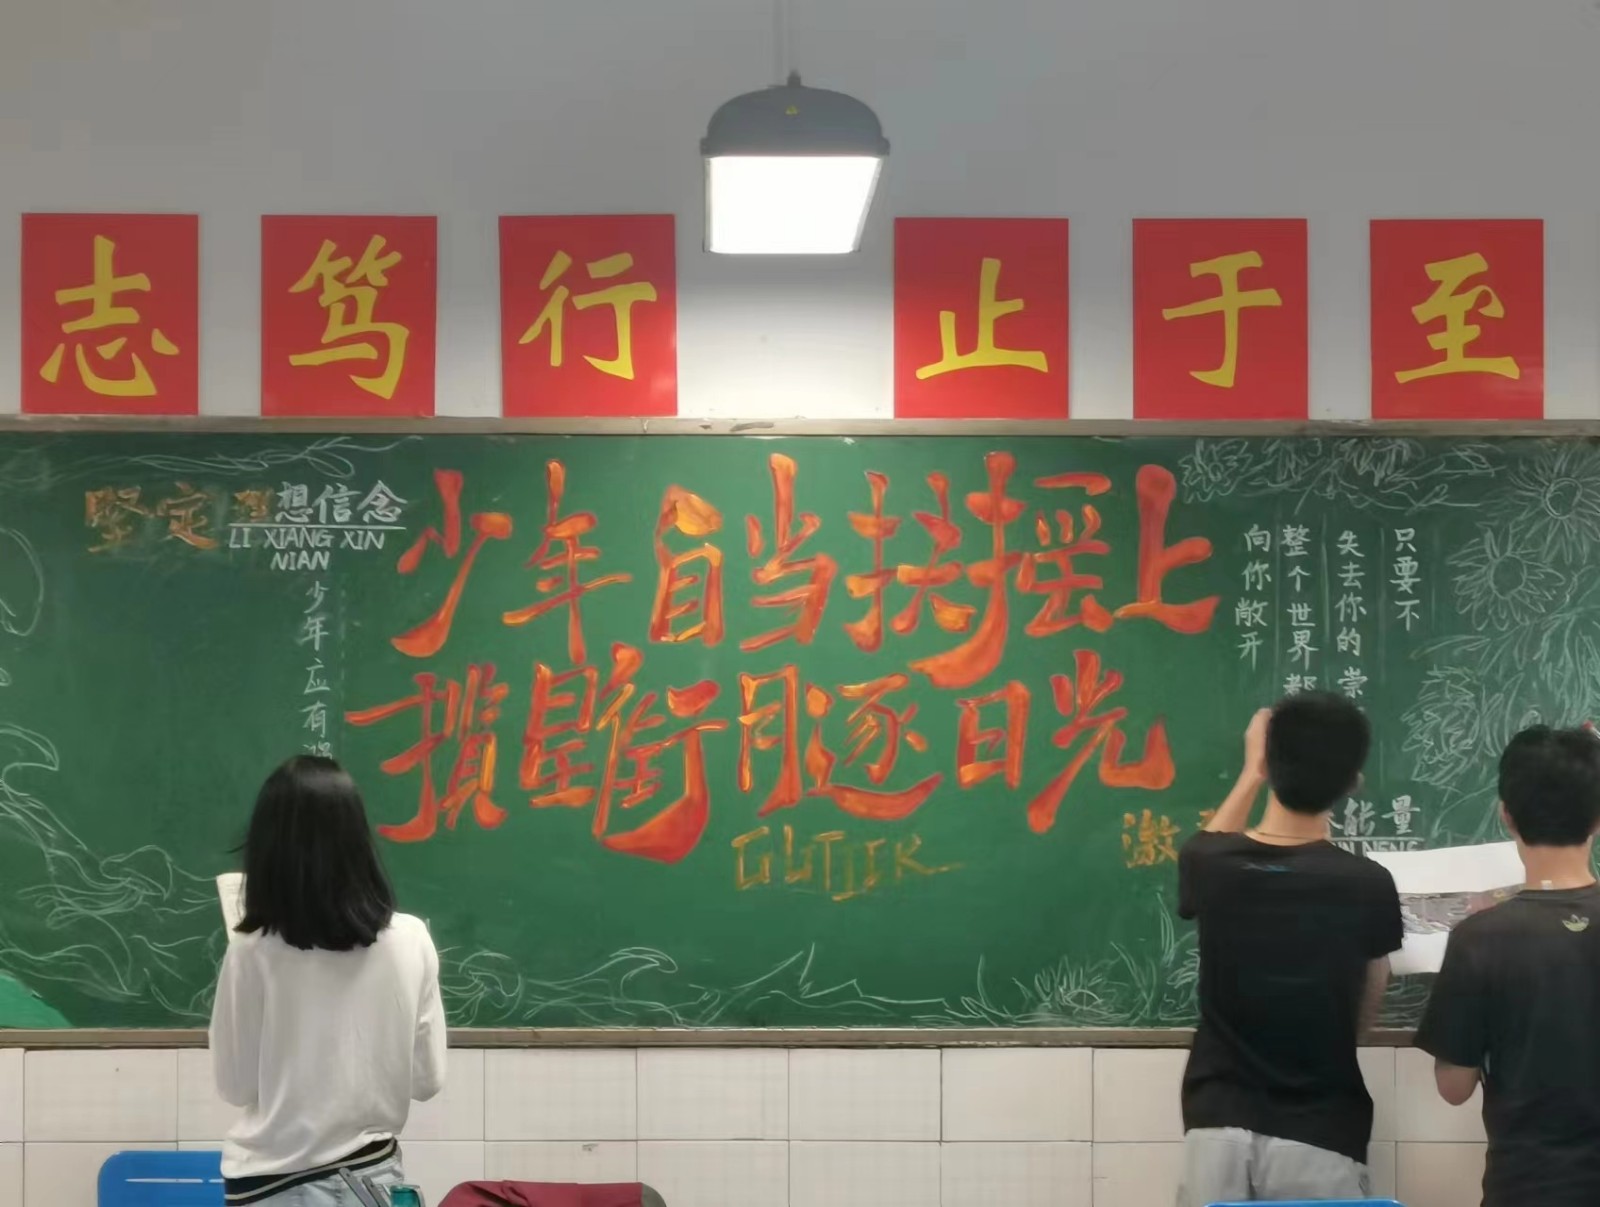 志 笃 行 止 于 至
坚定理想信念
LI XIANG XIN
NIAN
少年应有
少年自当扶摇上
揽星衔月逐日光
只要不
失去你的崇
整个世界都
向你敞开
激
能量
NENG